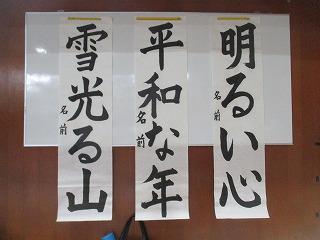 明るい心
名前
平和な年
名前
雪光る山
名前